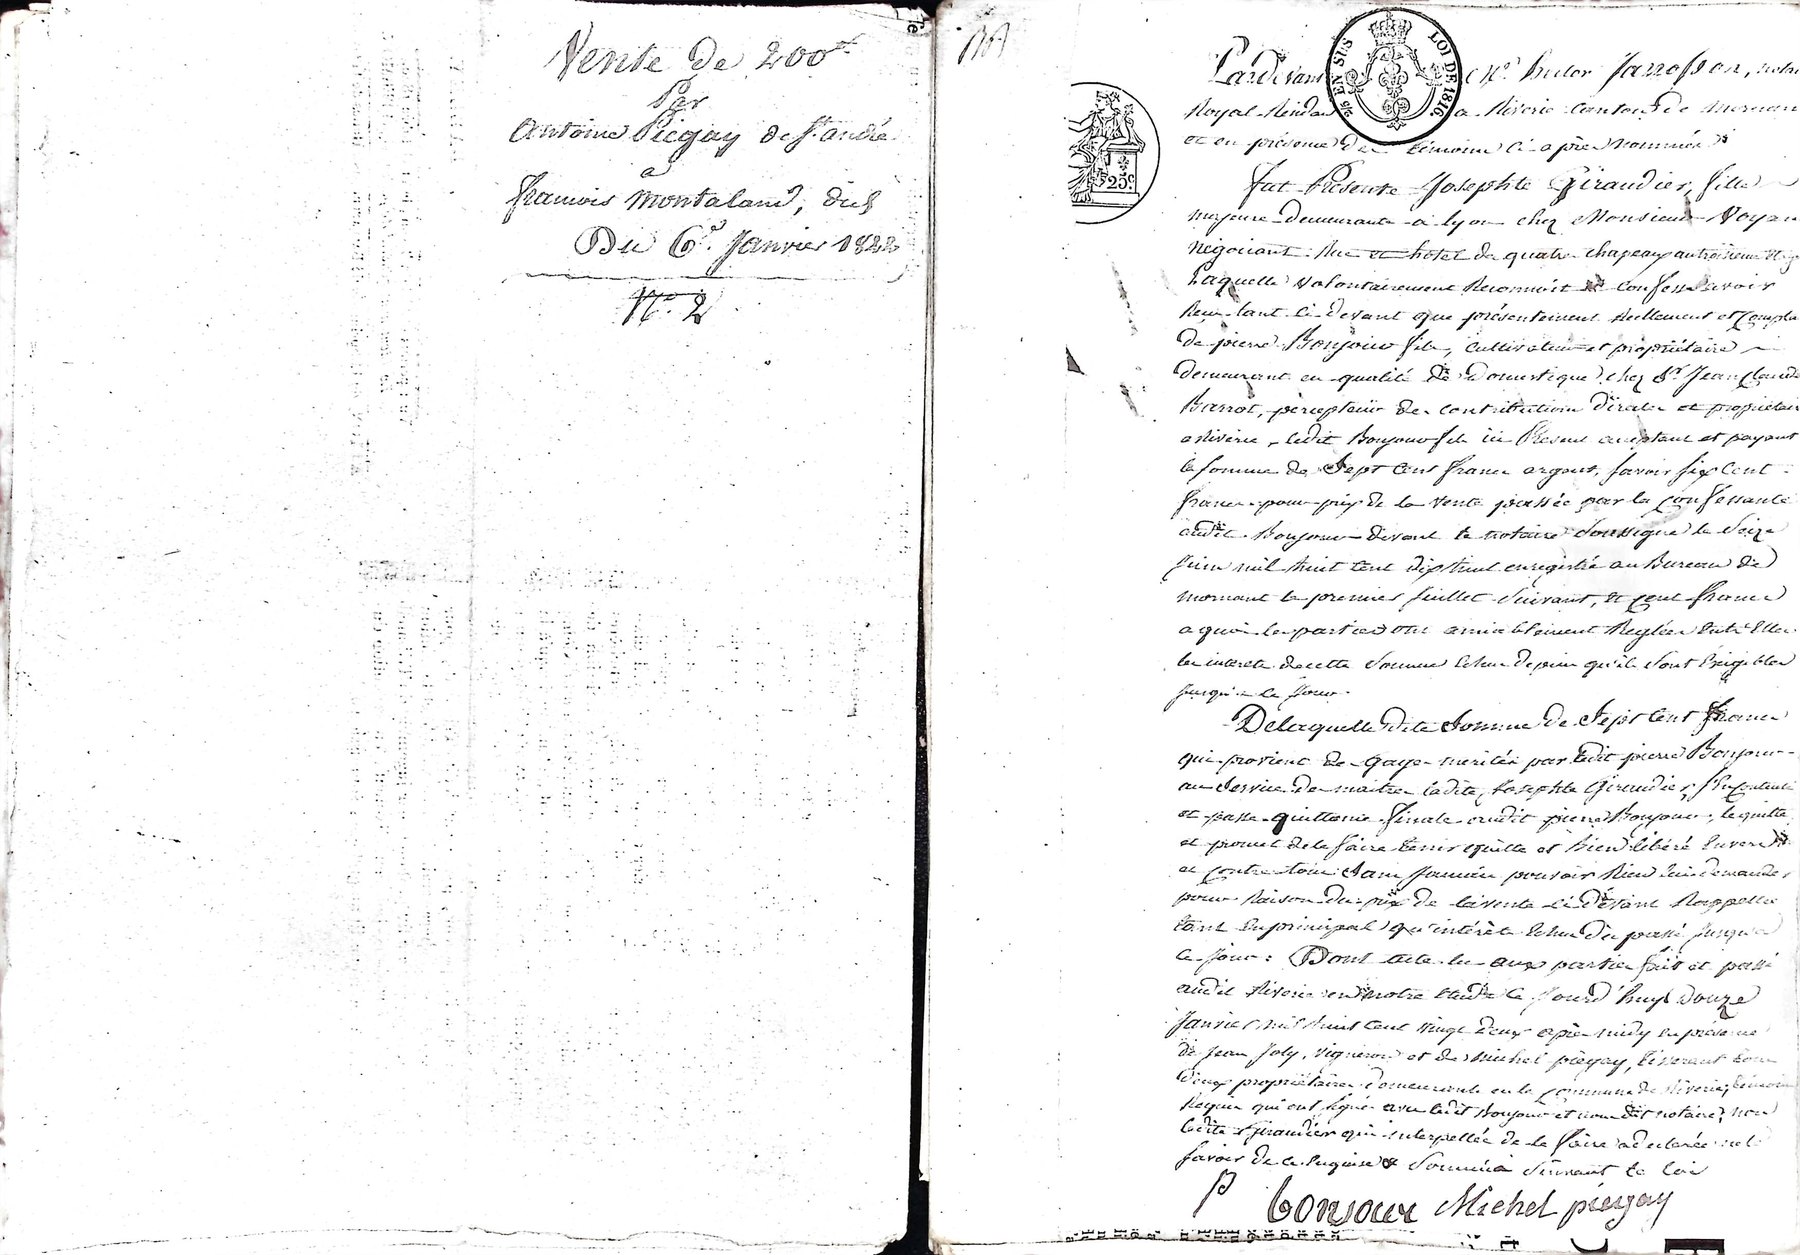 Vente de 200f
Par
Antoine Piegay de St. andré
a
francois Montaland, dud.
Du 6e. Janvier 1822
No. 2
EN SUS LOI DE 1816.
25c.
Pardevant Me. hector Jarrosson, notre
Royal Résidant a Riverie canton de Mornant
et en présence des témoins ci après nommés
fut Présente Josephte Giraudier, fille
majeure demeurante a lyon chez Monsieur Noyan
négociant Rue et hotel de quatre chapeaux au troisieme
Laquelle volontairement Reconnoit et Confesse avoir
Recu tant ci devant que présentement Réellement et Comptant
de pierre Bonjour fils, cultivateur et propriétaire
demeurant en qualité de domestique chez Sr. Jean Claude
Barrot, percepteur des contributions directes et propriétaire
a Riverie, ledit Bonjour fils ici Présent acceptant et payant
la somme de Sept Cent francs argent, savoir six Cent
francs pour prix de la vente passée par la confessante
audit Bonjour devant le notaire soussigné le Seize
Juin mil huit cent dix huit enregistré au Bureau de
mornant le premier Juillet Suivant, et Cent francs
a quoi les parties ont amiablement Reglées Entr'Elles
les interets de cette somme Echus depuis qu'ils sont Exigibles
Jusqu'a ce Jour.
De laquelle dite Somme de Sept Cent francs
qui provient de gages merités par ledit pierre Bonjour
au Service de maitres ladite Josephte Giraudier, se contente
et passe quittance finale audit pierre Bonjour, le quitte
et promet de le faire tenir quitte et Bien libéré Envers
et contre tous Sans Jamais pouvoir Rien lui demander
pour Raison du prix de la vente ci devant Rappellée
tant En principal qu'intérêts Echus du passé Jusqu'a
ce Jour: Dont acte lu aux parties fait et passé
audit Riverie en notre Etude ce Jourd'huy Douze
Janvier mil huit cent vingt deux après midy en présence
de Jean Joly, vigneron et de Michel piegay, tisserant tous
deux propriétaires demeurants en la Commune de Riverie, témoins
Requis qui ont signé avec ledit Bonjour et nous dit notaire, non
ladite Giraudier qui interpellée de le faire a declarée ne le
savoir de ce Enquise & Sommée Suivant la loi
P bonjour Michel piegay